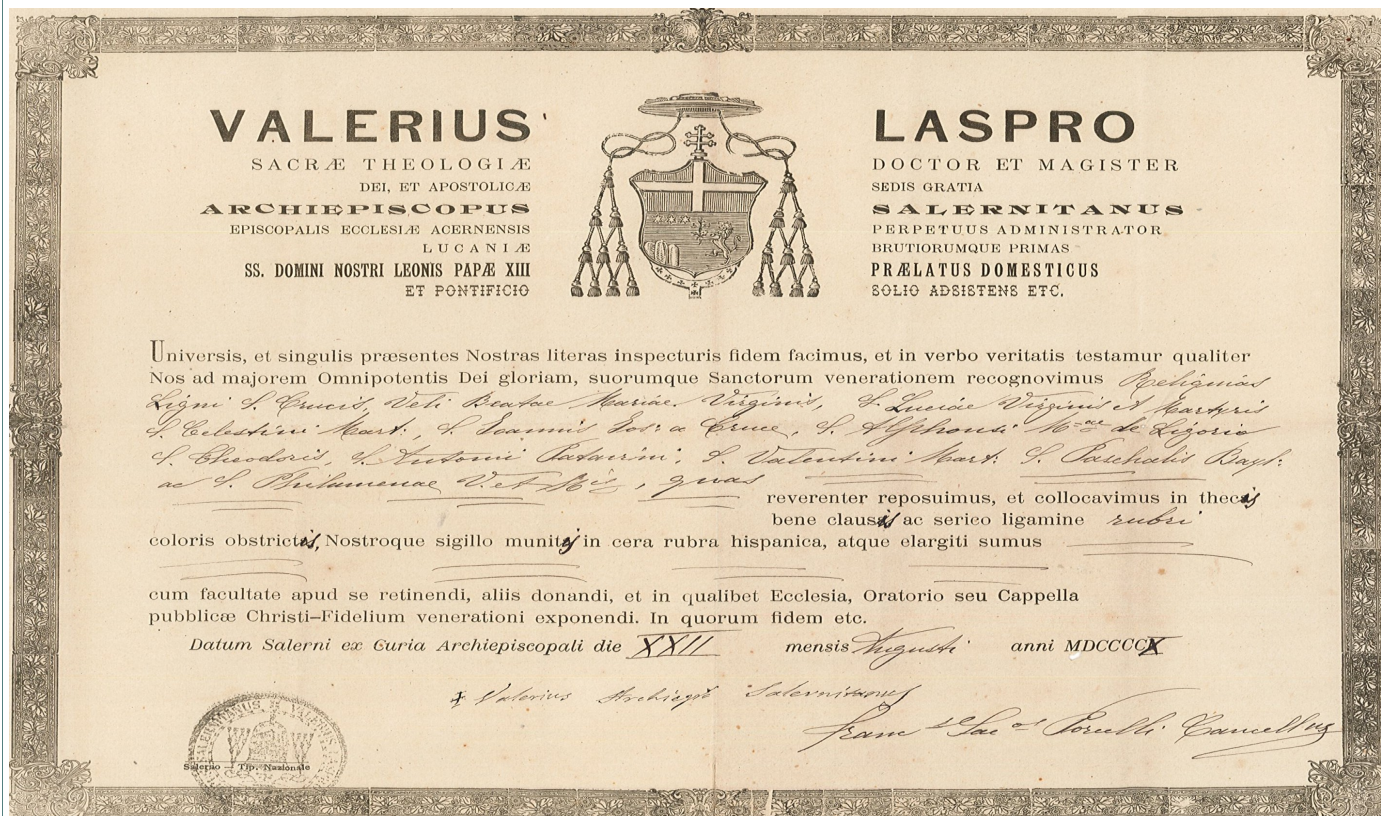 VALERIUS LASPRO
SACRÆ THEOLOGIÆ DOCTOR ET MAGISTER
DEI, ET APOSTOLICÆ SEDIS GRATIA
ARCHIEPISCOPUS SALERNITANUS
EPISCOPALIS ECCLESIÆ ACERNENSIS PERPETUUS ADMINISTRATOR
LUCANIÆ BRUTIORUMQUE PRIMAS
SS. DOMINI NOSTRI LEONIS PAPÆ XIII PRÆLATUS DOMESTICUS
ET PONTIFICIO SOLIO ADSISTENS ETC.
Universis, et singulis præsentes Nostras literas inspecturis fidem facimus, et in verbo veritatis testamur qualiter
Nos ad majorem Omnipotentis Dei gloriam, suorumque Sanctorum venerationem recognovimus Reliquias
Ligni S. Crucis, Veli Beatae Mariae Virginis, S. Luciae Virginis et Martyris
S. Celestini Mart:, S. Ioannis Ios: a Cruce, S. Alphonsi Mae de Ligorio
S. Theodoris, S. Antonii Patavini, S. Valentini Mart: S. Paschalis Bayl:
ac S. Philumenae V. et Mis, quas reverenter reposuimus, et collocavimus in thecis
bene clausis ac serico ligamine rubri
coloris obstrictis, Nostroque sigillo munitis in cera rubra hispanica, atque elargiti sumus
cum facultate apud se retinendi, aliis donandi, et in qualibet Ecclesia, Oratorio seu Cappella
pubblicæ Christi-Fidelium venerationi exponendi. In quorum fidem etc.
Datum Salerni ex Curia Archiepiscopali die XXII mensis Augusti anni MDCCCCX
+ Valerius Archiepũs Salernitanus
Franc Sac Porcelli Cancellus
Salerno — Tip. Nazionale